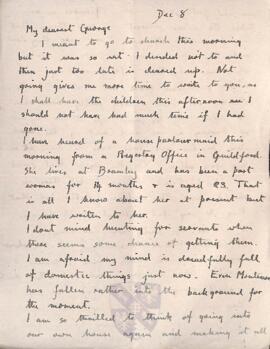 Dec 8
My dearest George
I meant to go to church this morning
but it was so wet I decided not to and
then just too late it cleared up. Not
going gives me more time to write to you, as
I shall have the children this afternoon so I
should not have had much time if I had
gone.
I have heard of a house parlour maid this
morning from a Registry Office in Guildford.
She lives at Bramley and has been a past
woman for months & is aged 23. That
is all I know about her at present but
I have written to her.
I dont mind hunting for servants when
there seems some chance of getting them.
I am afraid my mind is dreadfully full
of domestic things just now. Even
has fallen rather into the background for
the moment.
I am so thrilled to think of going into
our own house again and making it all